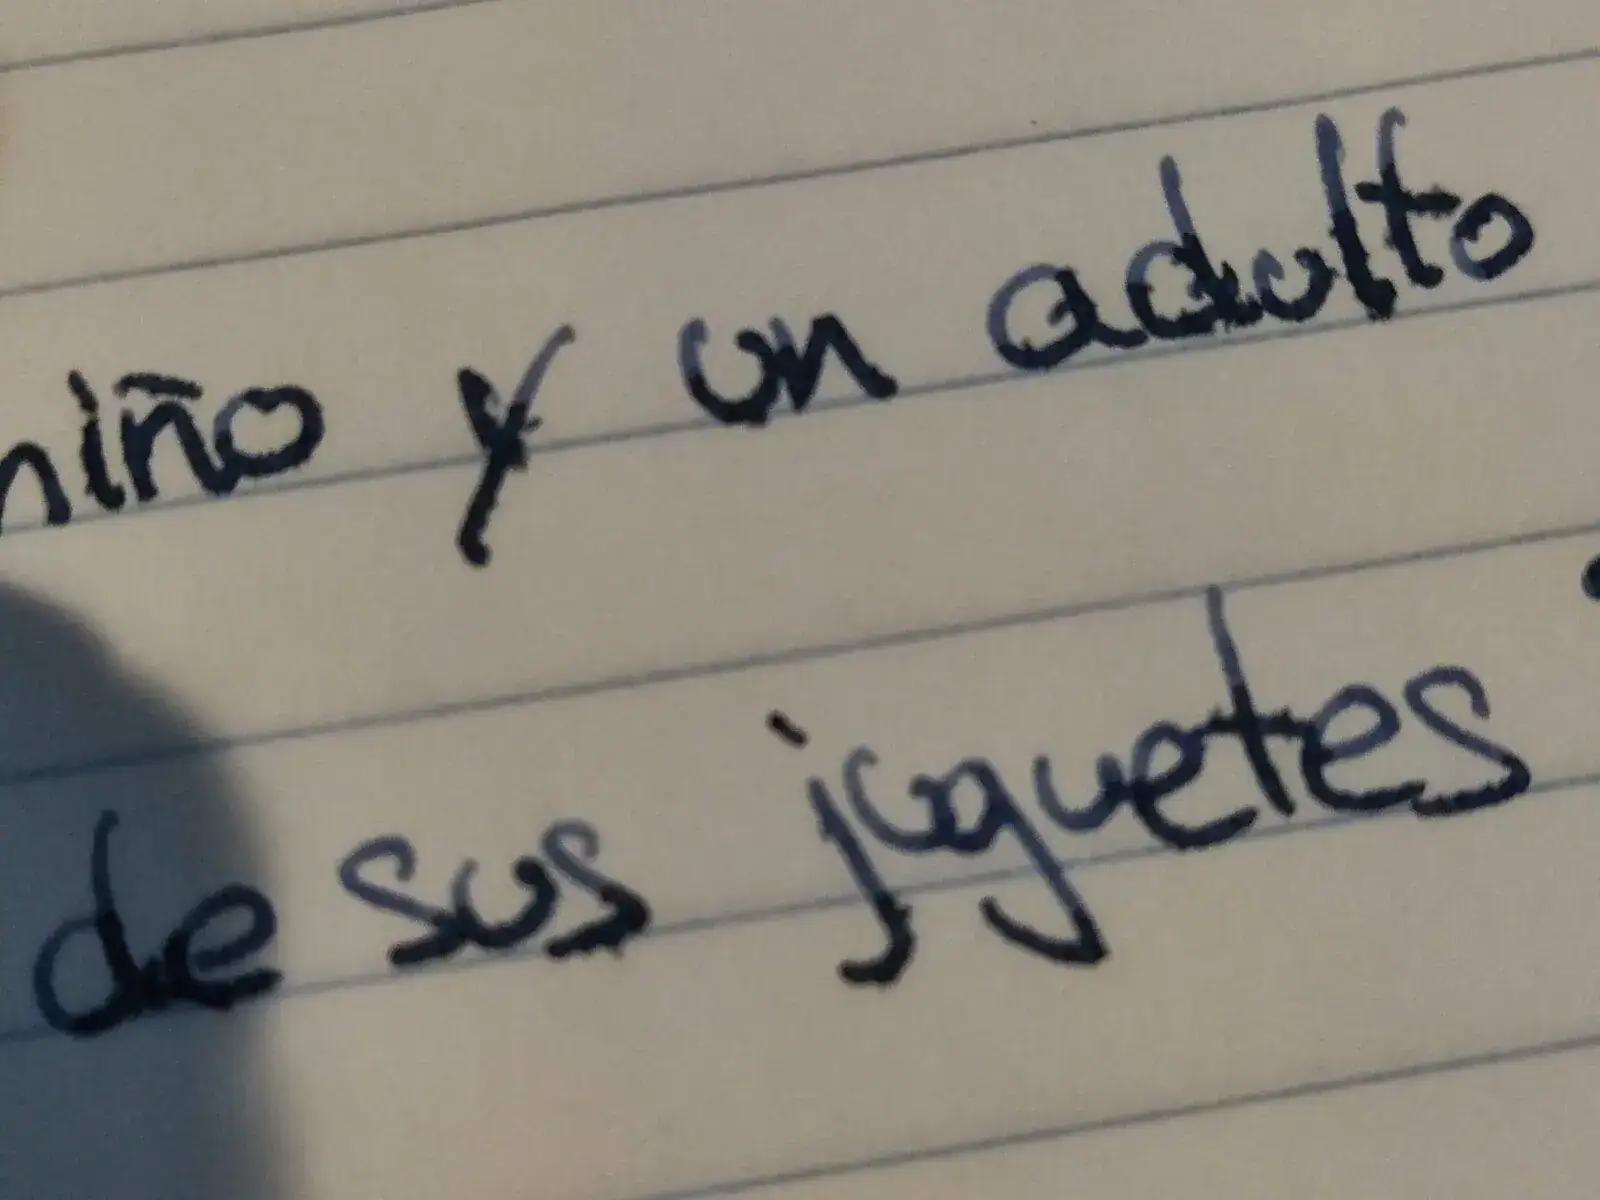 niño y un adulto
de sus juguetes